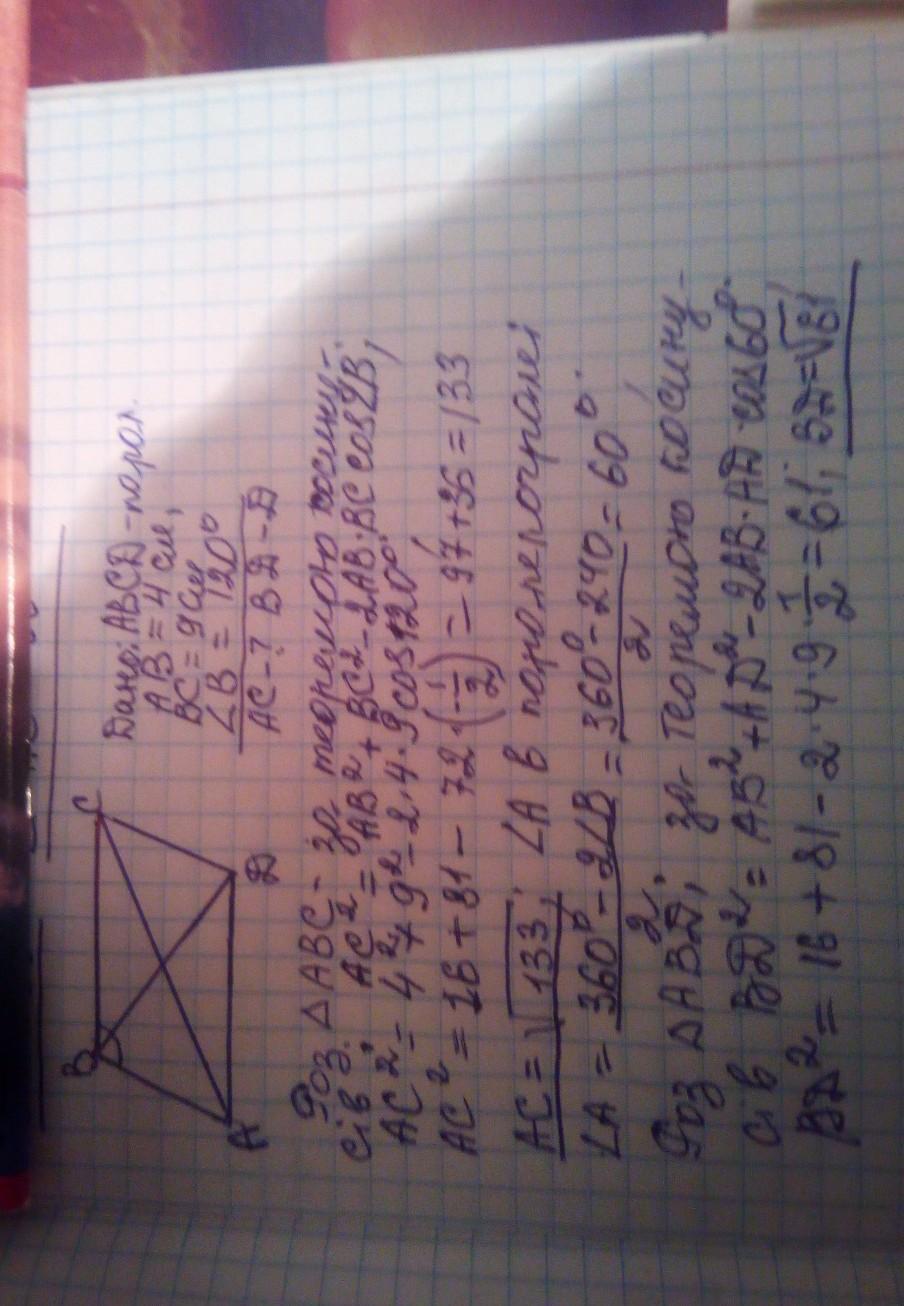 B
C
A
D
Дано: ABCD - парал.
AB = 4 см,
BC = 9 см
∠B = 120°
AC - ? BD - D
Роз. △ ABC - за теоремою косину-
сів: AC² = AB² + BC² - 2AB·BC cos∠B;
AC² = 4² + 9² - 2·4·9 cos120°
AC² = 16 + 81 - 72·(-1/2) = 97 + 36 = 133
AC = √133, ∠A в паралелограмі
∠A = (360° - 2∠B)/2 = (360° - 240)/2 = 60°.
Роз △ ABD, за теоремою косину-
сів BD² = AB² + AD² - 2AB·AD·cos60°.
BD² = 16 + 81 - 2·4·9·1/2 = 61; BD = √61